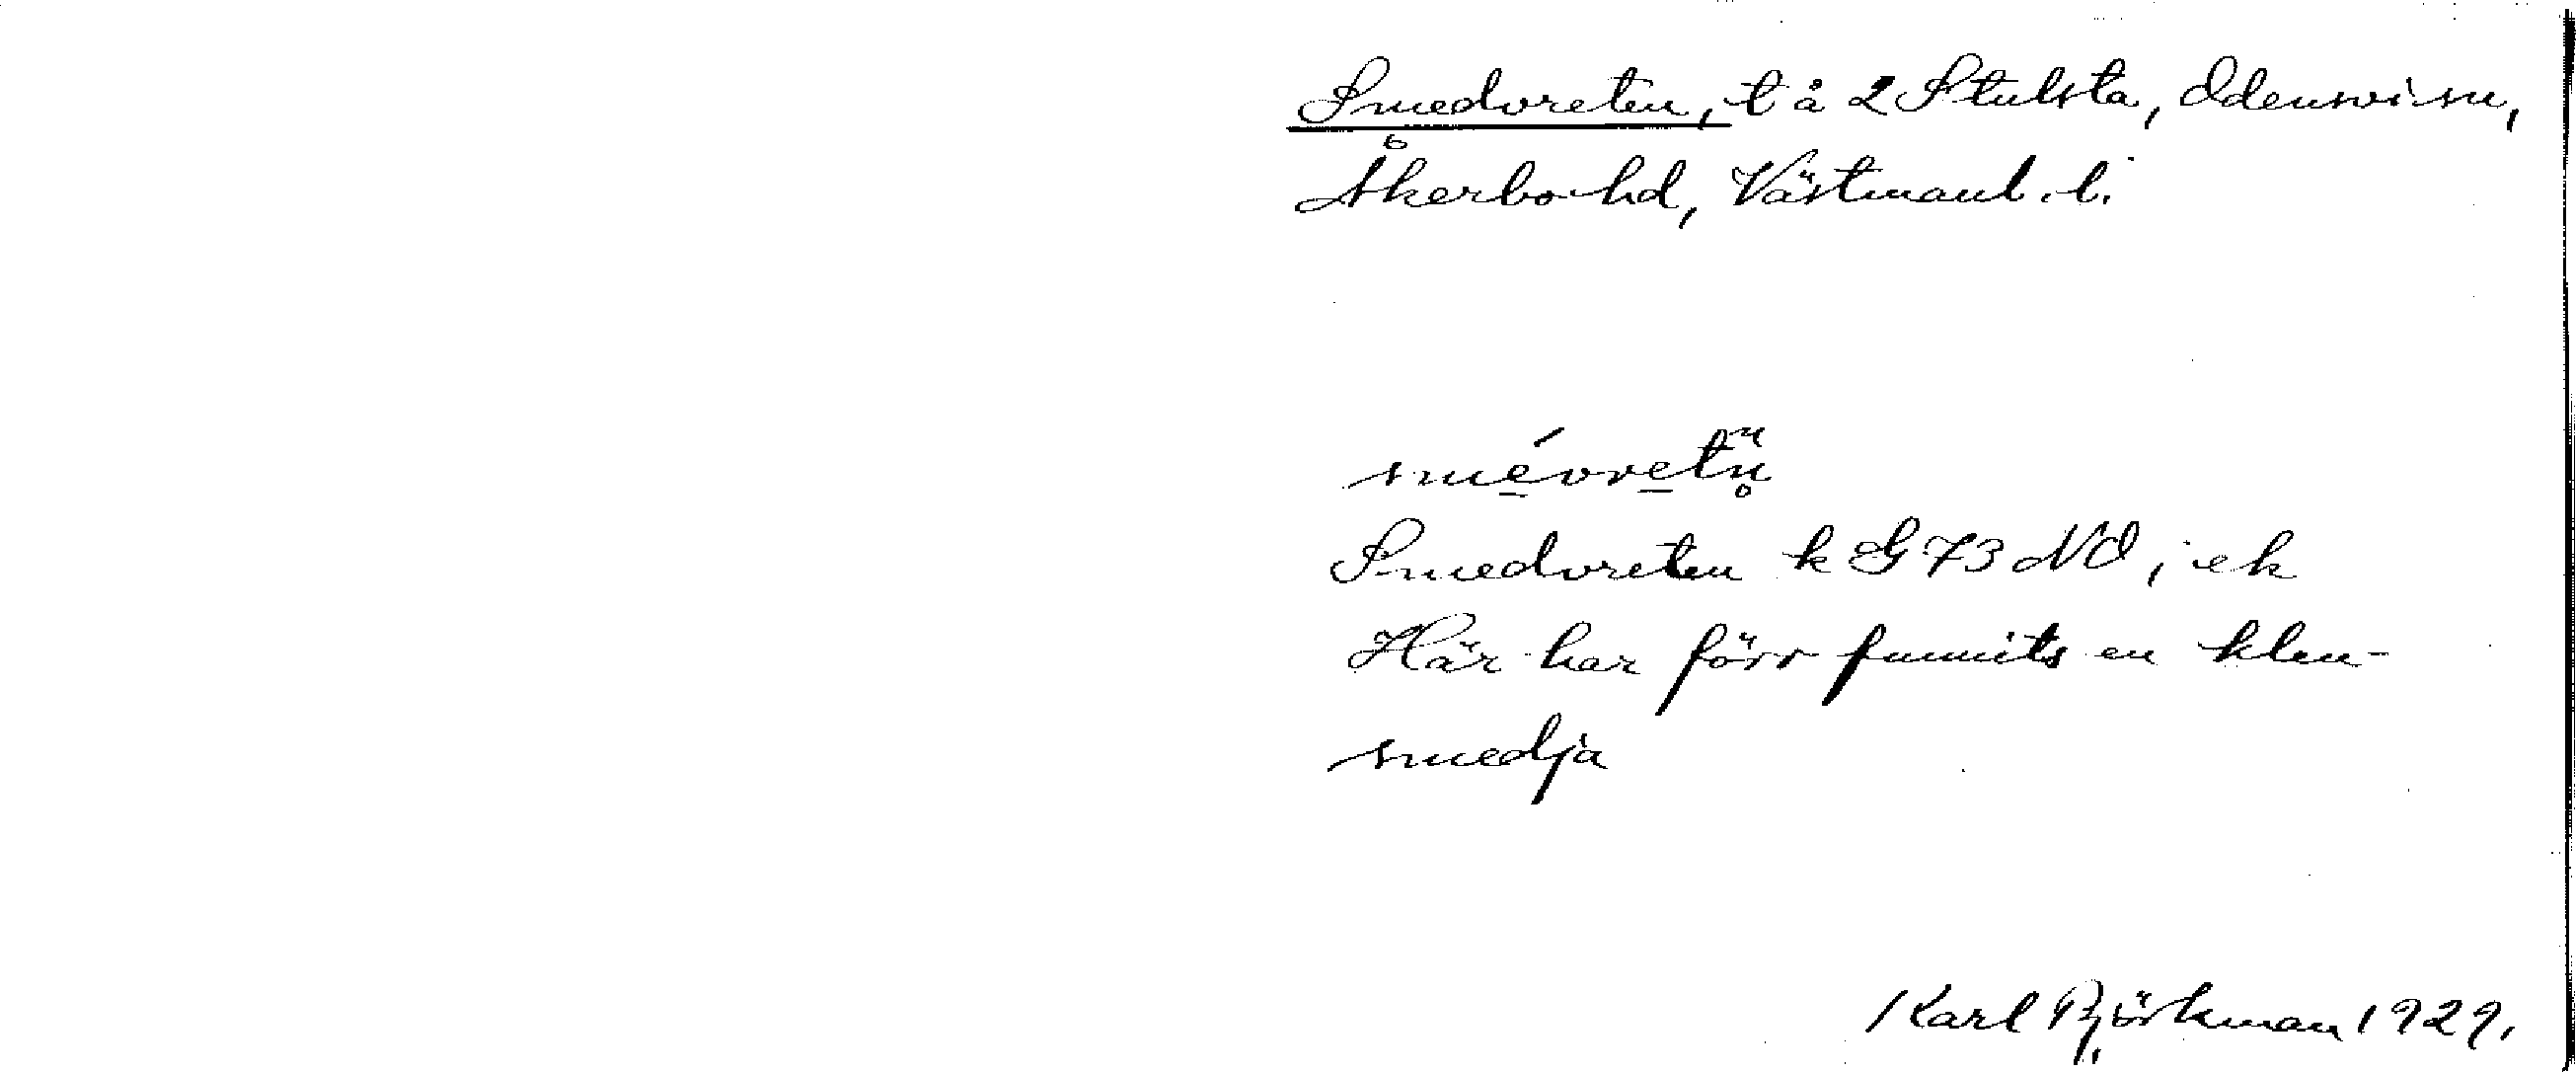 Smedvreten, t å 2 Stulsta, Odensvi sn,
Åkerbo hd, Västmanl. l.
smévretn̥
Smedvreten k G 73 NO, ek
Här har förr funnits en klen-
smedja
Karl Björkman 1929.